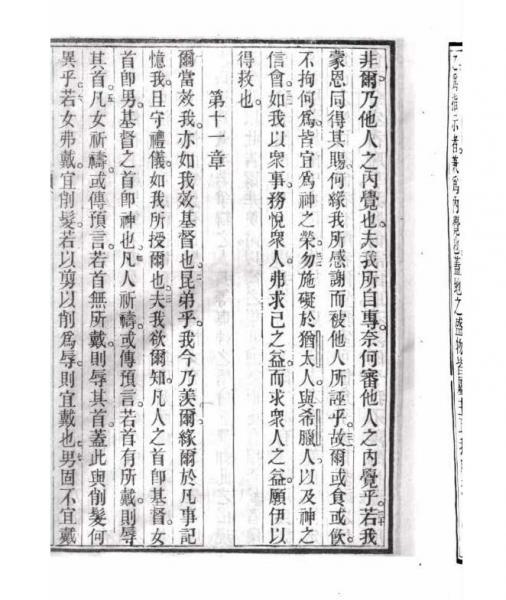 之爲指示者蓋爲內覺也蓋地之盛物皆屬主
非爾乃他人之內覺也夫我所自專奈何審他人之內覺乎若我
蒙恩同得其賜何緣我所感謝而被他人所誣乎故爾或食或飲
不拘何爲皆宜爲神之榮勿施礙於猶太人與希臘人以及神之
信會如我以衆事務悅衆人弗求己之益而求衆人之益願伊以
得救也
第十一章
爾當效我亦如我效基督也昆弟乎我今乃羨爾緣爾於凡事記
憶我且守禮儀如我所授爾也夫我欲爾知凡人之首卽基督女
首卽男基督之首卽神也凡人祈禱或傳預言若首有所戴則辱
其首凡女祈禱或傳預言若首無所戴則辱其首蓋此與削髮何
異乎若女弗戴宜削髮若以剪以削爲辱則宜戴也男固不宜戴